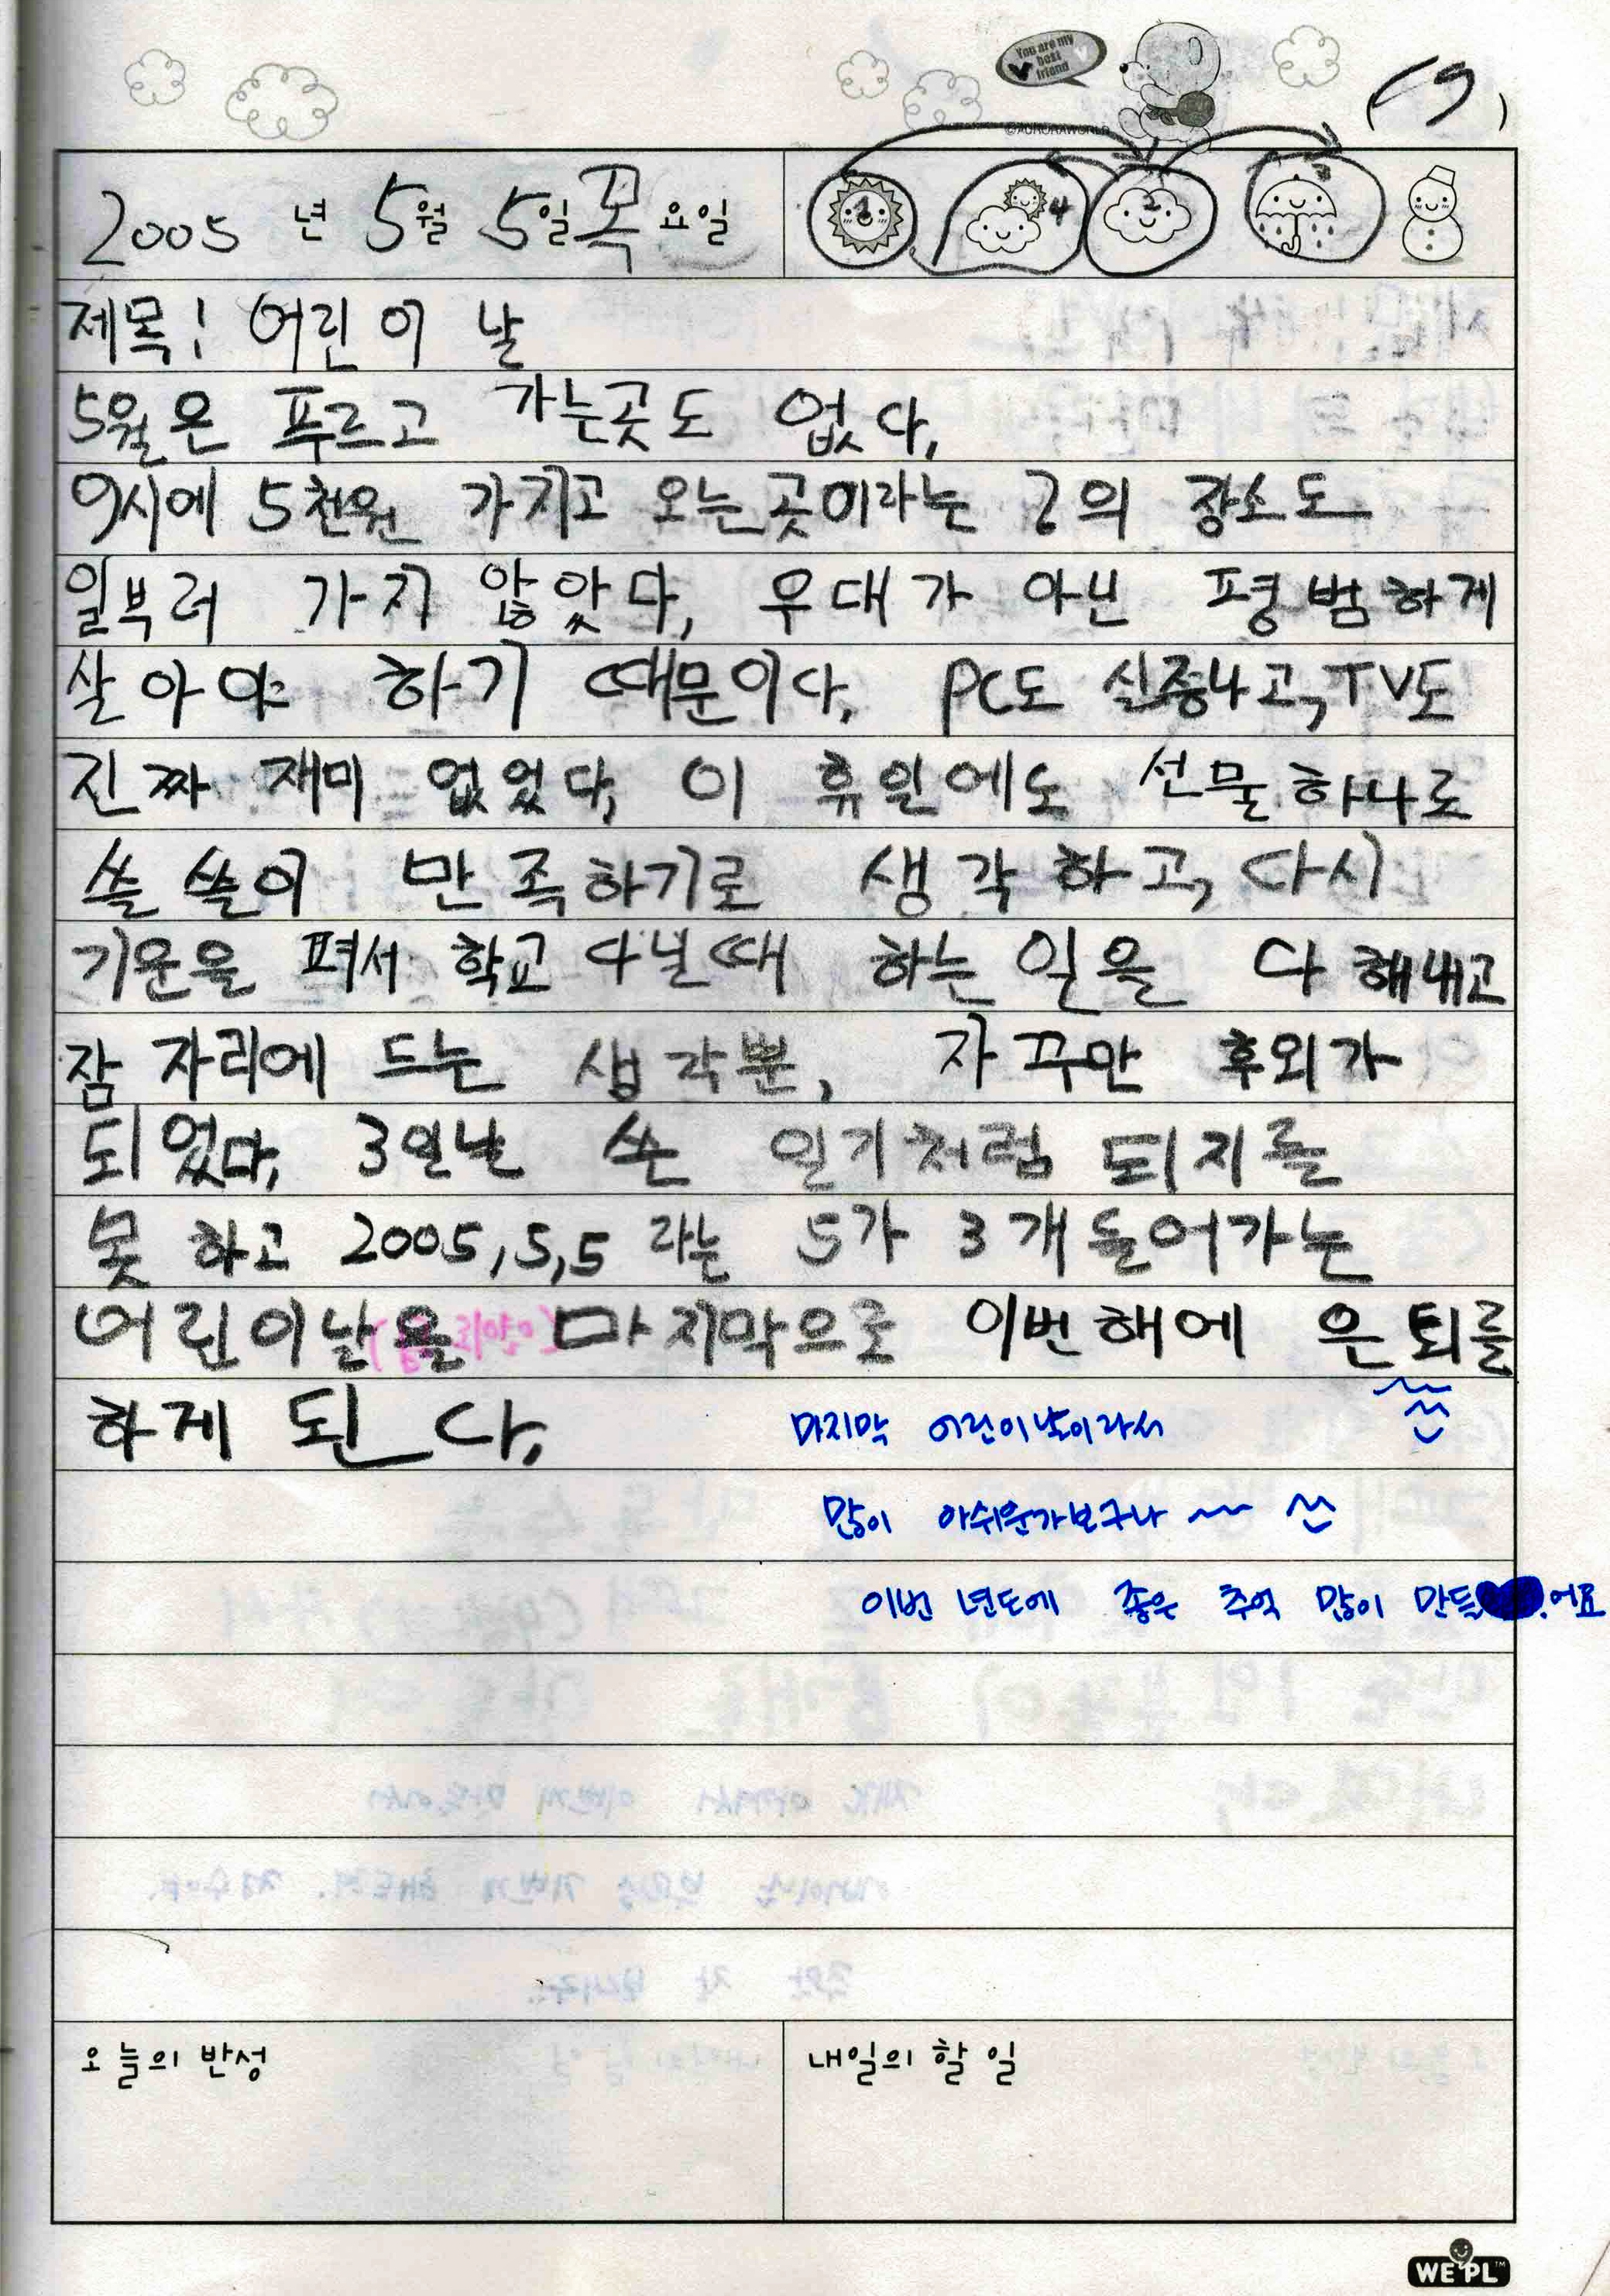 You are my
best
friend
©AURORAWORLD
2005 년 5월 5일 목요일
1 4 2 3
제목! 어린이 날
5월은 푸르고 가는곳도 없다,
9시에 5천원 가지고 오는곳이라는 2의 장소도
일부러 가지 않았다, 우대가 아닌 평범하게
살아야 하기 때문이다, PC도 싫증나고, TV도
진짜 재미 없었다, 이 휴일에도 선물하나로
쓸쓸이 만족하기로 생각하고, 다시
기운을 펴서 학교 다닐때 하는 일을 다 해내고
잠자리에 드는 생각뿐, 자꾸만 후외가
되었다, 3일날 쓴 일기처럼 되지를
못 하고 2005,5,5 라는 5가 3개 들어가는
어린이날을 마지막으로 이번해에 은퇴를
하게 된다,
마지막 어린이날이라서
많이 아쉬운가보구나
이번 년도에 좋은 추억 많이 만들어요
오늘의 반성
내일의 할 일
WE PL™